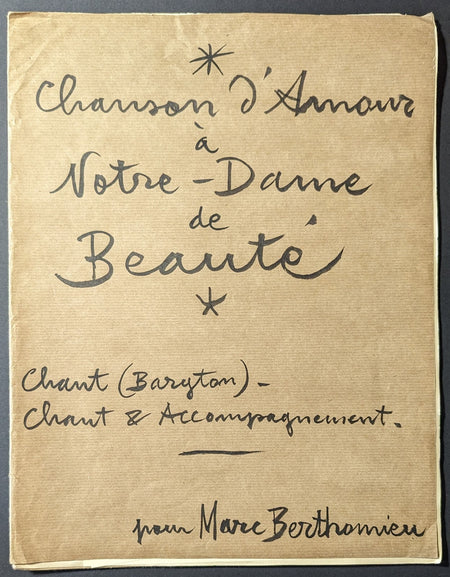 Chanson d'Amour
à
Notre-Dame
de
Beauté
Chant (Baryton) -
Chant & Accompagnement.
pour Marc Berthomieu